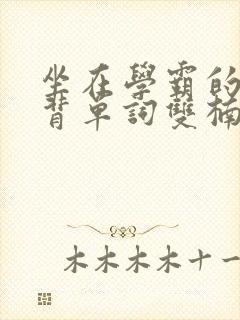 坐在學霸的
背單詞雙楠
木木木木十一